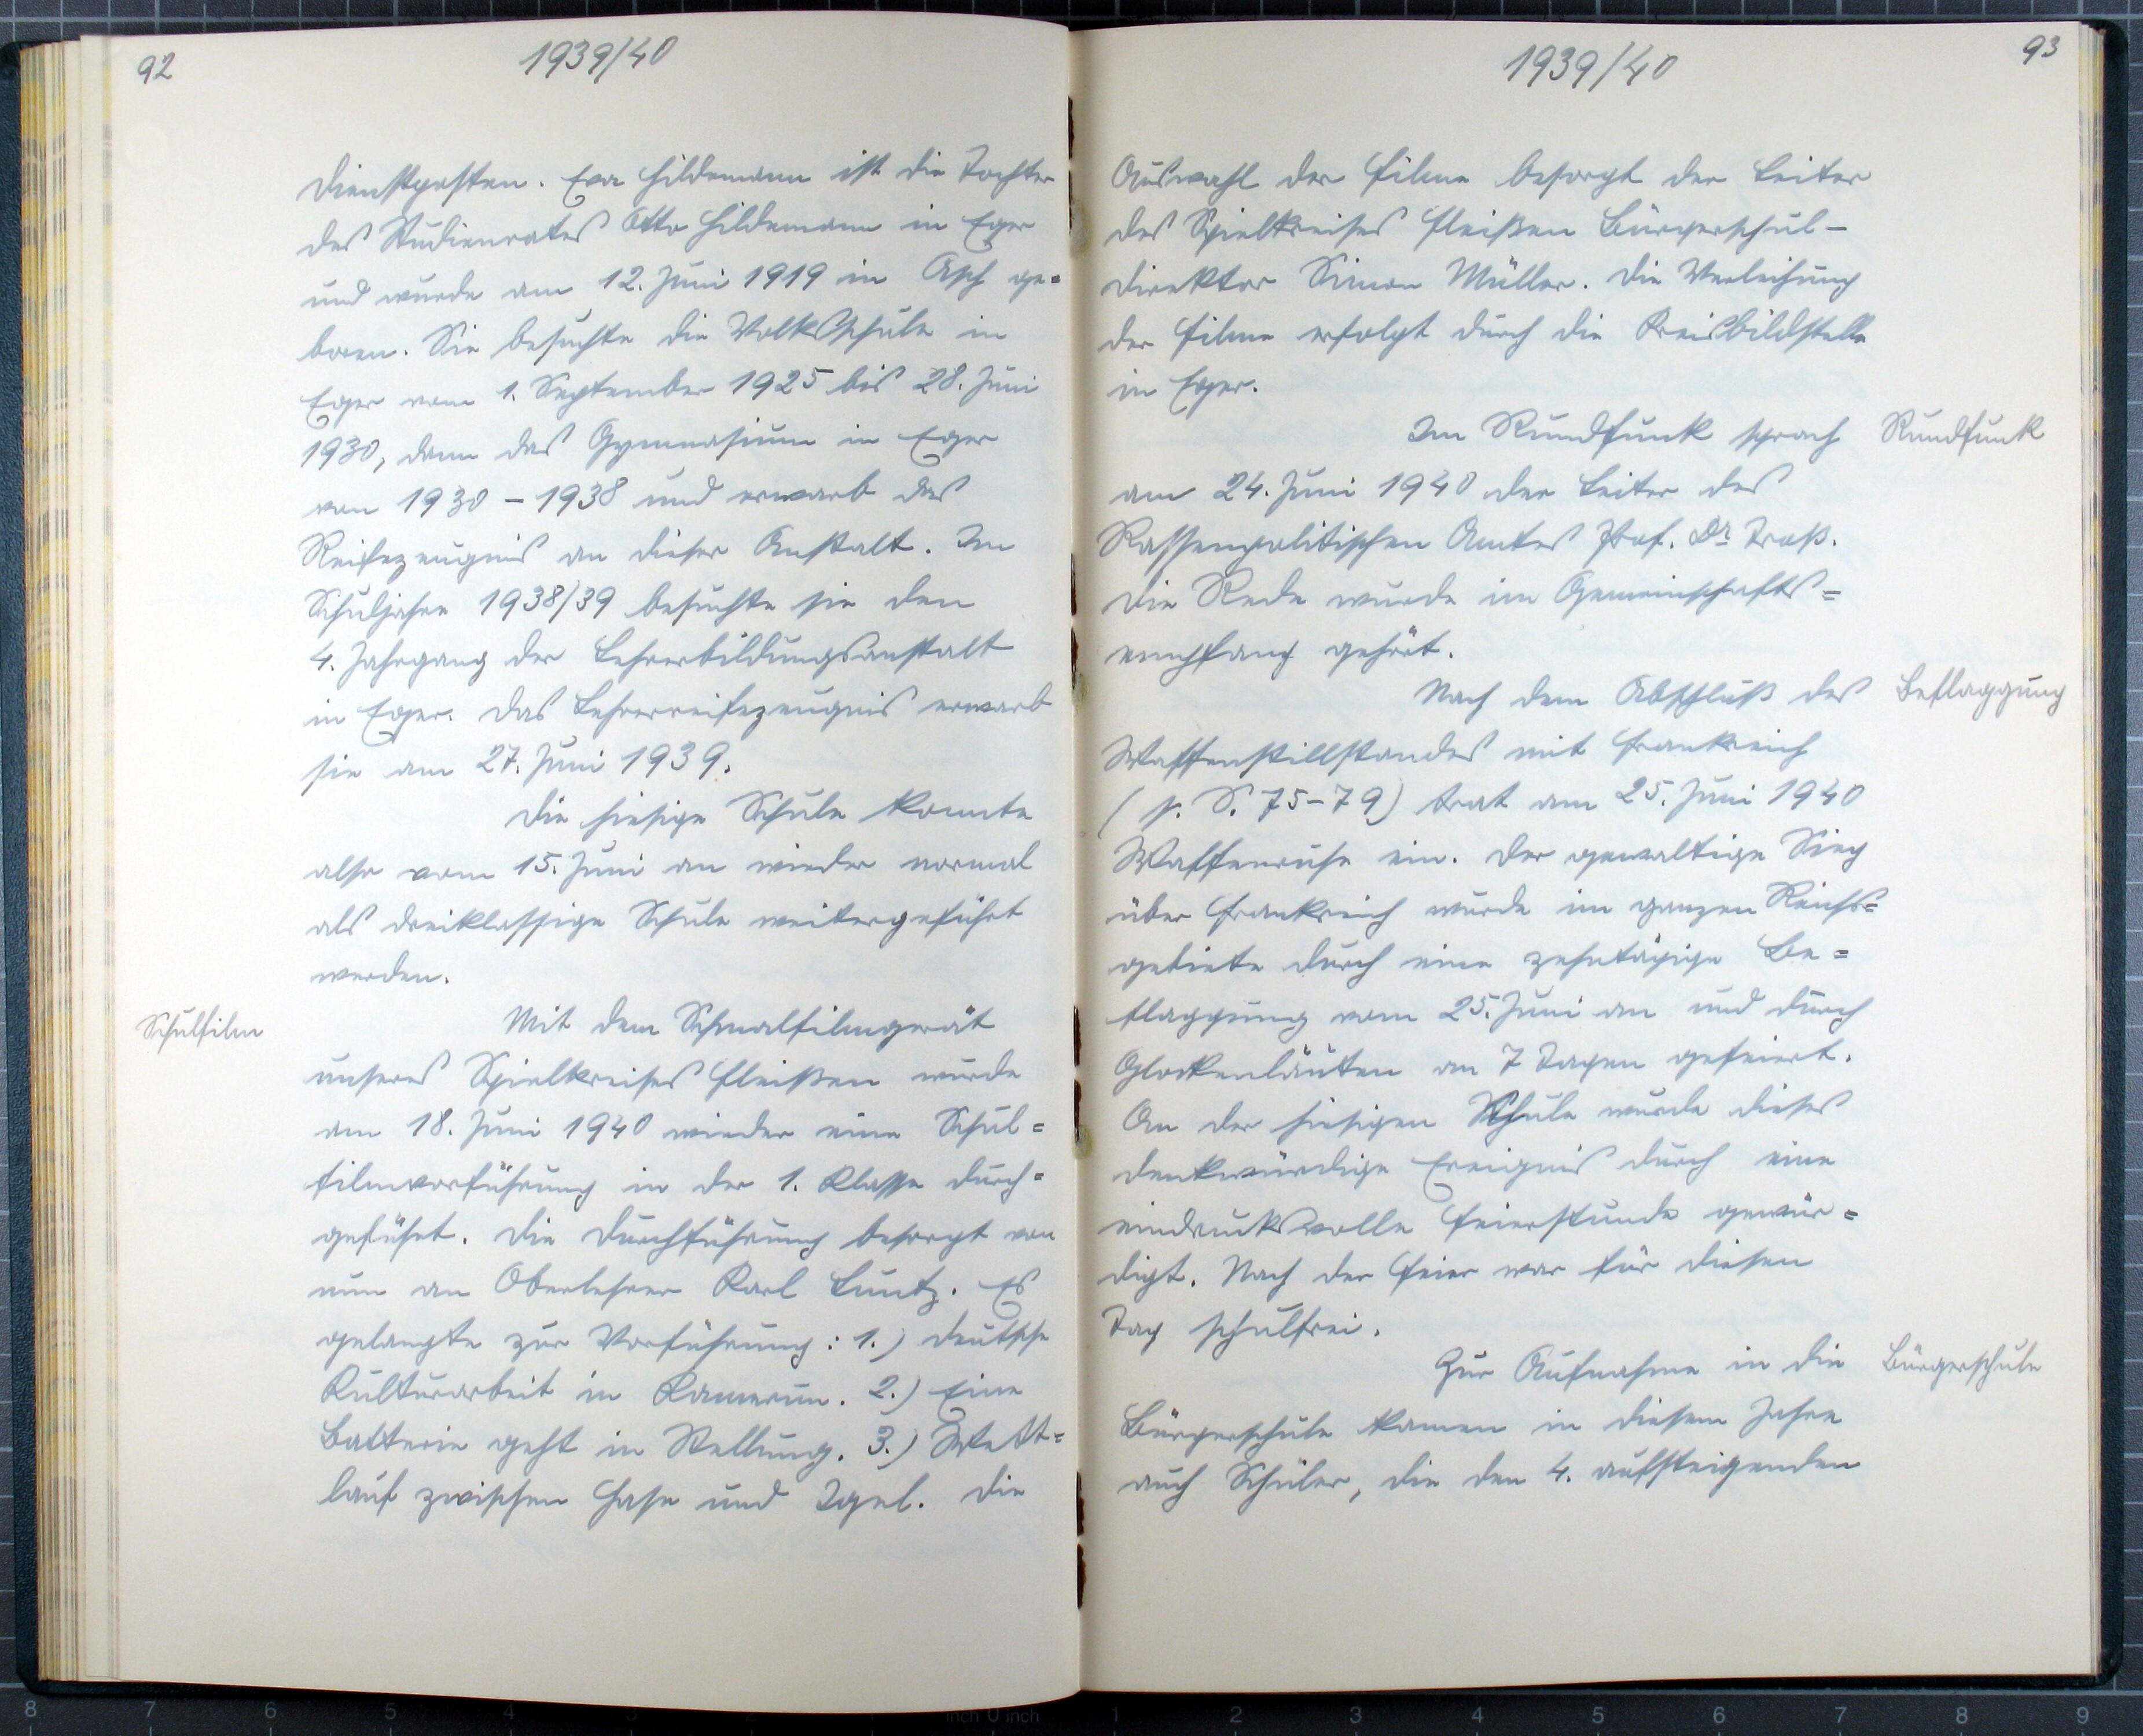 92
1939/40
Dienstposten. Eva Hildemann ist die Tochter
des Studienrates Otto Hildemann in Eger
und wurde am 12. Juni 1919 in Asch ge=
boren. Sie besuchte die Volksschule in
Eger vom 1. September 1925 bis 28. Juni
1930, dann das Gymnasium in Eger
von 1930 – 1938 und erwarb das
Reifezeugnis an dieser Anstalt. Im
Schuljahre 1938/39 besuchte sie den
4. Jahrgang der Lehrerbildungsanstalt
in Eger. Das Lehrerreifezeugnis erwarb
sie am 27. Juni 1939.
Die hiesige Schule konnte
also vom 15. Juni an wieder normal
als dreiklassige Schule weitergeführt
werden.
Schulfilm
Mit dem Schmalfilmgerät
unseres Spielkreises Fleißen wurde
am 18. Juni 1940 wieder eine Schul=
filmvorführung in der 1. Klasse durch=
geführt. Die Durchführung besorgt von
nun an Oberlehrer Karl Luntz. Es
gelangte zur Vorführung: 1.) Deutsche
Kulturarbeit in Kamerun. 2.) Eine
Batterie geht in Stellung. 3.) Wett=
lauf zwischen Hase und Igel. Die
93
1939/40
Auswahl der Filme besorgt der Leiter
des Spielkreises Fleißen Bürgerschul-
direktor Simon Müller. Die Verleihung
der Filme erfolgt durch die Kreisbildstelle
in Eger.
Im Rundfunk sprach
Rundfunk
am 24. Juni 1940 der Leiter des
Rassenpolitischen Amtes Prof. Dr
Die Rede wurde im Gemeinschafts=
empfang gehört.
Nach dem Abschluß des
Beflaggung
Waffenstillstandes mit Frankreich
(s. S. 75-79) trat am 25. Juni 1940
Waffenruhe ein. Der gewaltige Sieg
über Frankreich wurde im ganzen Reichs=
gebiete durch eine zehntägige Be=
flaggung vom 25. Juni an und durch
Glockenläuten an 7 Tagen gefeiert.
An der hiesigen Schule wurde dieses
denkwürdige Ereignis durch eine
eindrucksvolle Feierstunde gewür=
digt. Nach der Feier war für diesen
Tag schulfrei.
Zur Aufnahme in die
Bürgerschule
Bürgerschule kamen in diesem Jahre
auch Schüler, die den 4. aufsteigenden
8 7 6 5 4 3 2 1 inch 0 inch 1 2 3 4 5 6 7 8 9